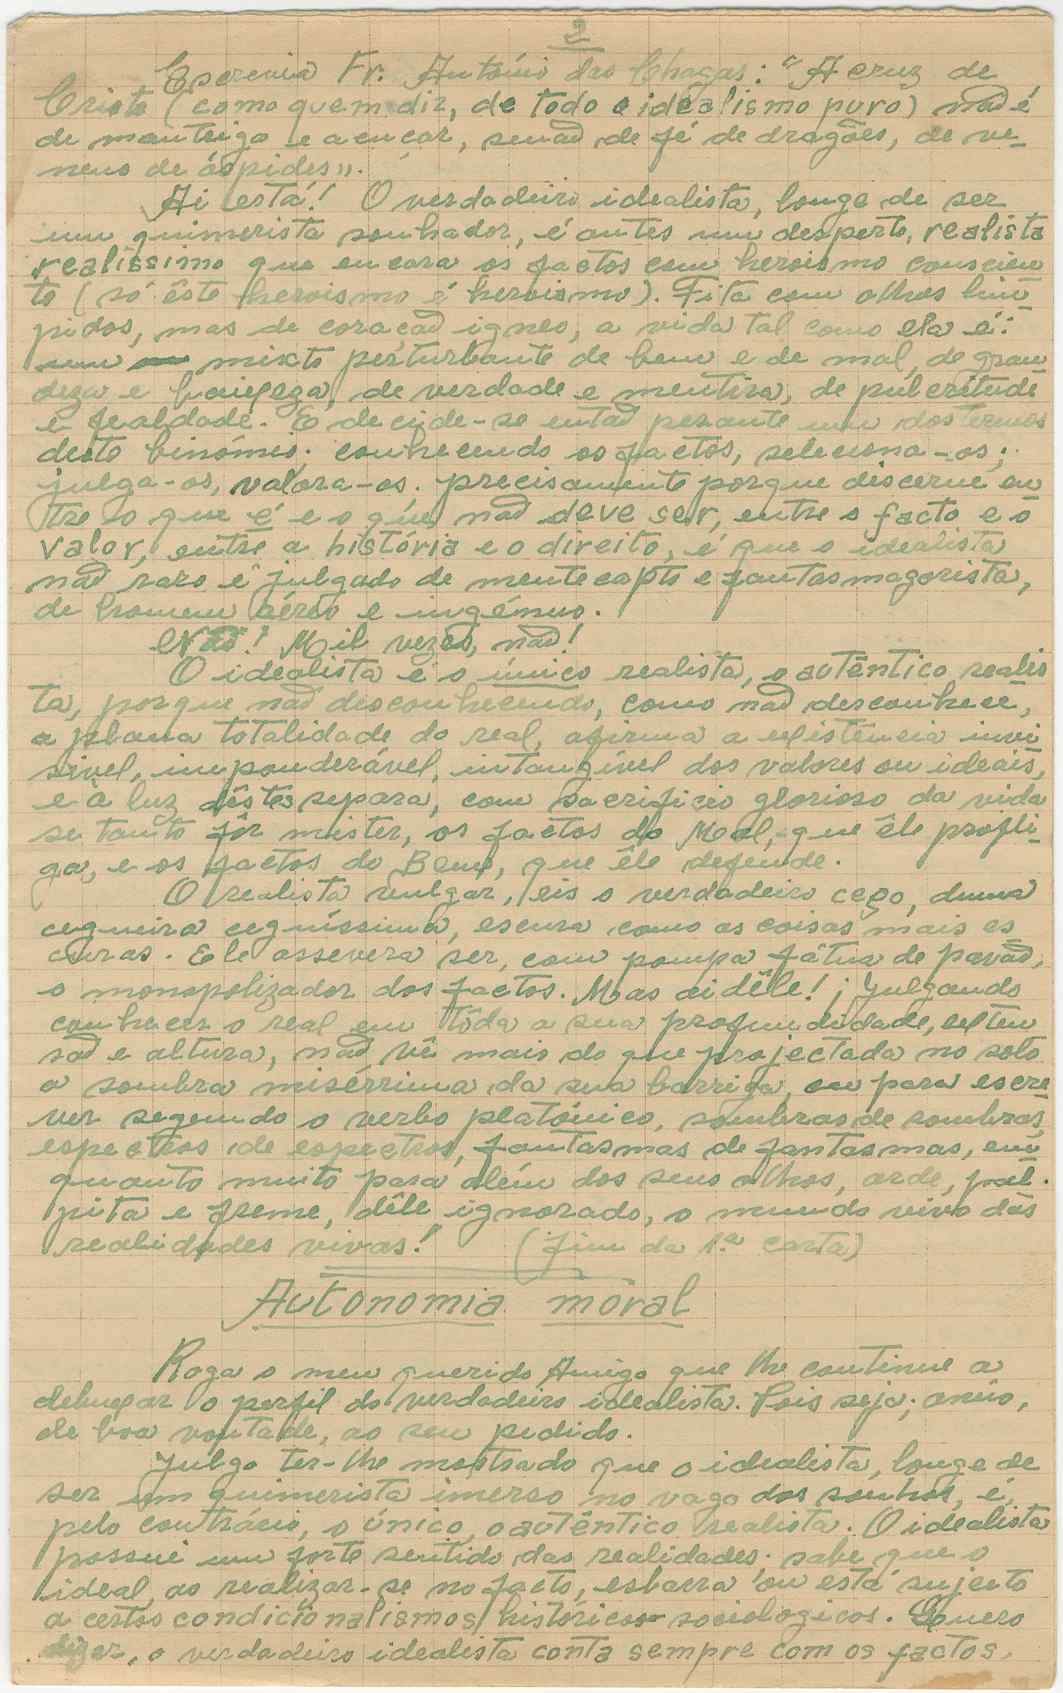 2
Escrevia Fr. António das Chagas: "A cruz de
Cristo (como quem diz, de todo o idealismo puro) não é
de manteiga e açúcar, senão de fé de dragões, de ve-
neno de áspides".
Aí está! O verdadeiro idealista, longe de ser
um quimerista sonhador, é antes um desperto, realista
realíssimo que encara os factos com heroismo conscien
te (só êste heroismo é heroismo). Fita com olhos lim-
pidos, mas de coração igneo, a vida tal como ela é:
um mixto perturbante de bem e de mal, de gran
deza e baixeza, de verdade e mentira, de pulcritude
e fealdade. E decide-se então perante um dos termos
deste binómio: conhecendo os factos, seleciona-os;
julga-os, valora-os. precisamente porque discerne en
tre o que é e o que não deve ser, entre o facto e o
valor, entre a história e o direito, é que o idealista
não raro é julgado de mentecapto e fantasmagorista,
de homem aéreo e ingénuo.
Não! Mil vezes, não!
O idealista é o único realista, o autêntico realis
ta, porque não desconhecendo, como não desconhece,
a plana totalidade do real, afirma a existência invi
sivel, imponderável, intangível dos valores ou ideais,
e à luz dêstes separa, com sacrificio glorioso da vida
se tanto fôr mister, os factos do Mal, que êle profli-
ga, e os factos do Bem, que êle defende.
O realista vulgar, eis o verdadeiro cego, duma
cegueira ceguíssima, escura como as coisas mais es
curas. Ele assevera ser, com pompa fátua de pavão,
o monopolizador dos factos. Mas ai dêle!; julgando
conhecer o real em tôda a sua profundidade, exten
são e altura, não vê mais do que projectada no solo
a sombra misérrima da sua barriga, ou para escre
ver segundo o verbo platónico, sombras de sombras,
espectros de espectros, fantasmas de fantasmas, en-
quanto muito para além dos seus olhos, arde, pal-
pita e freme, dêle ignorado, o mundo vivo das
realidades vivas!" (fim da 1.ª carta)
Autonomia moral
Roga o meu querido Amigo que lhe continue a
debuxar o perfil do verdadeiro idealista. Pois seja; anuo,
de boa vontade, ao seu pedido.
Julgo ter-lhe mostrado que o idealista, longe de
ser um quimerista imerso no vago dos sonhos, é,
pelo contrário, o único, o autêntico realista. O idealista
possui um forte sentido das realidades. sabe que o
ideal ao realizar-se no facto, esbarra ou está sujeito
a certos condicionalismos históricos-sociologicos. Quero
dizer, o verdadeiro idealista conta sempre com os factos.